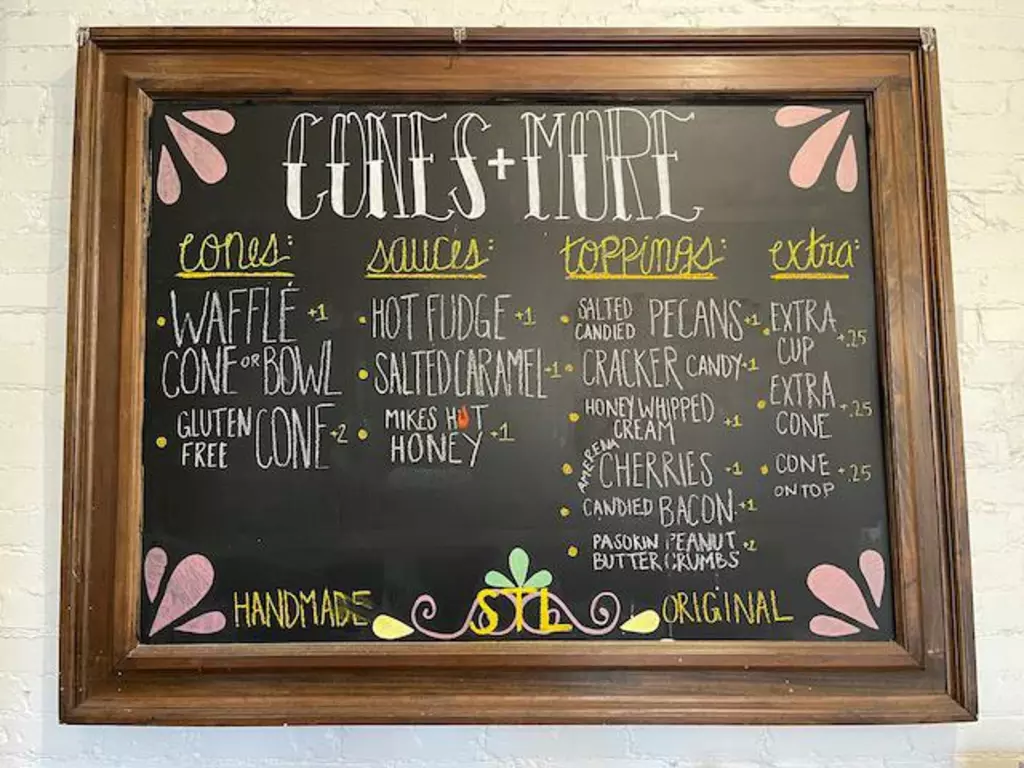 CONES + MORE
cones:
WAFFLE +1
CONE OR BOWL
GLUTEN FREE CONE +2
sauces:
HOT FUDGE +1
SALTED CARAMEL +1
MIKES HOT
HONEY +1
toppings:
SALTED CANDIED PECANS +1
CRACKER CANDY +1
HONEY WHIPPED
CREAM +1
AMERENA CHERRIES +1
CANDIED BACON +1
PASOKIN PEANUT
BUTTER CRUMBS +2
extra:
EXTRA
CUP +.25
EXTRA
CONE +.25
CONE +.25
ON TOP
HANDMADE STL ORIGINAL